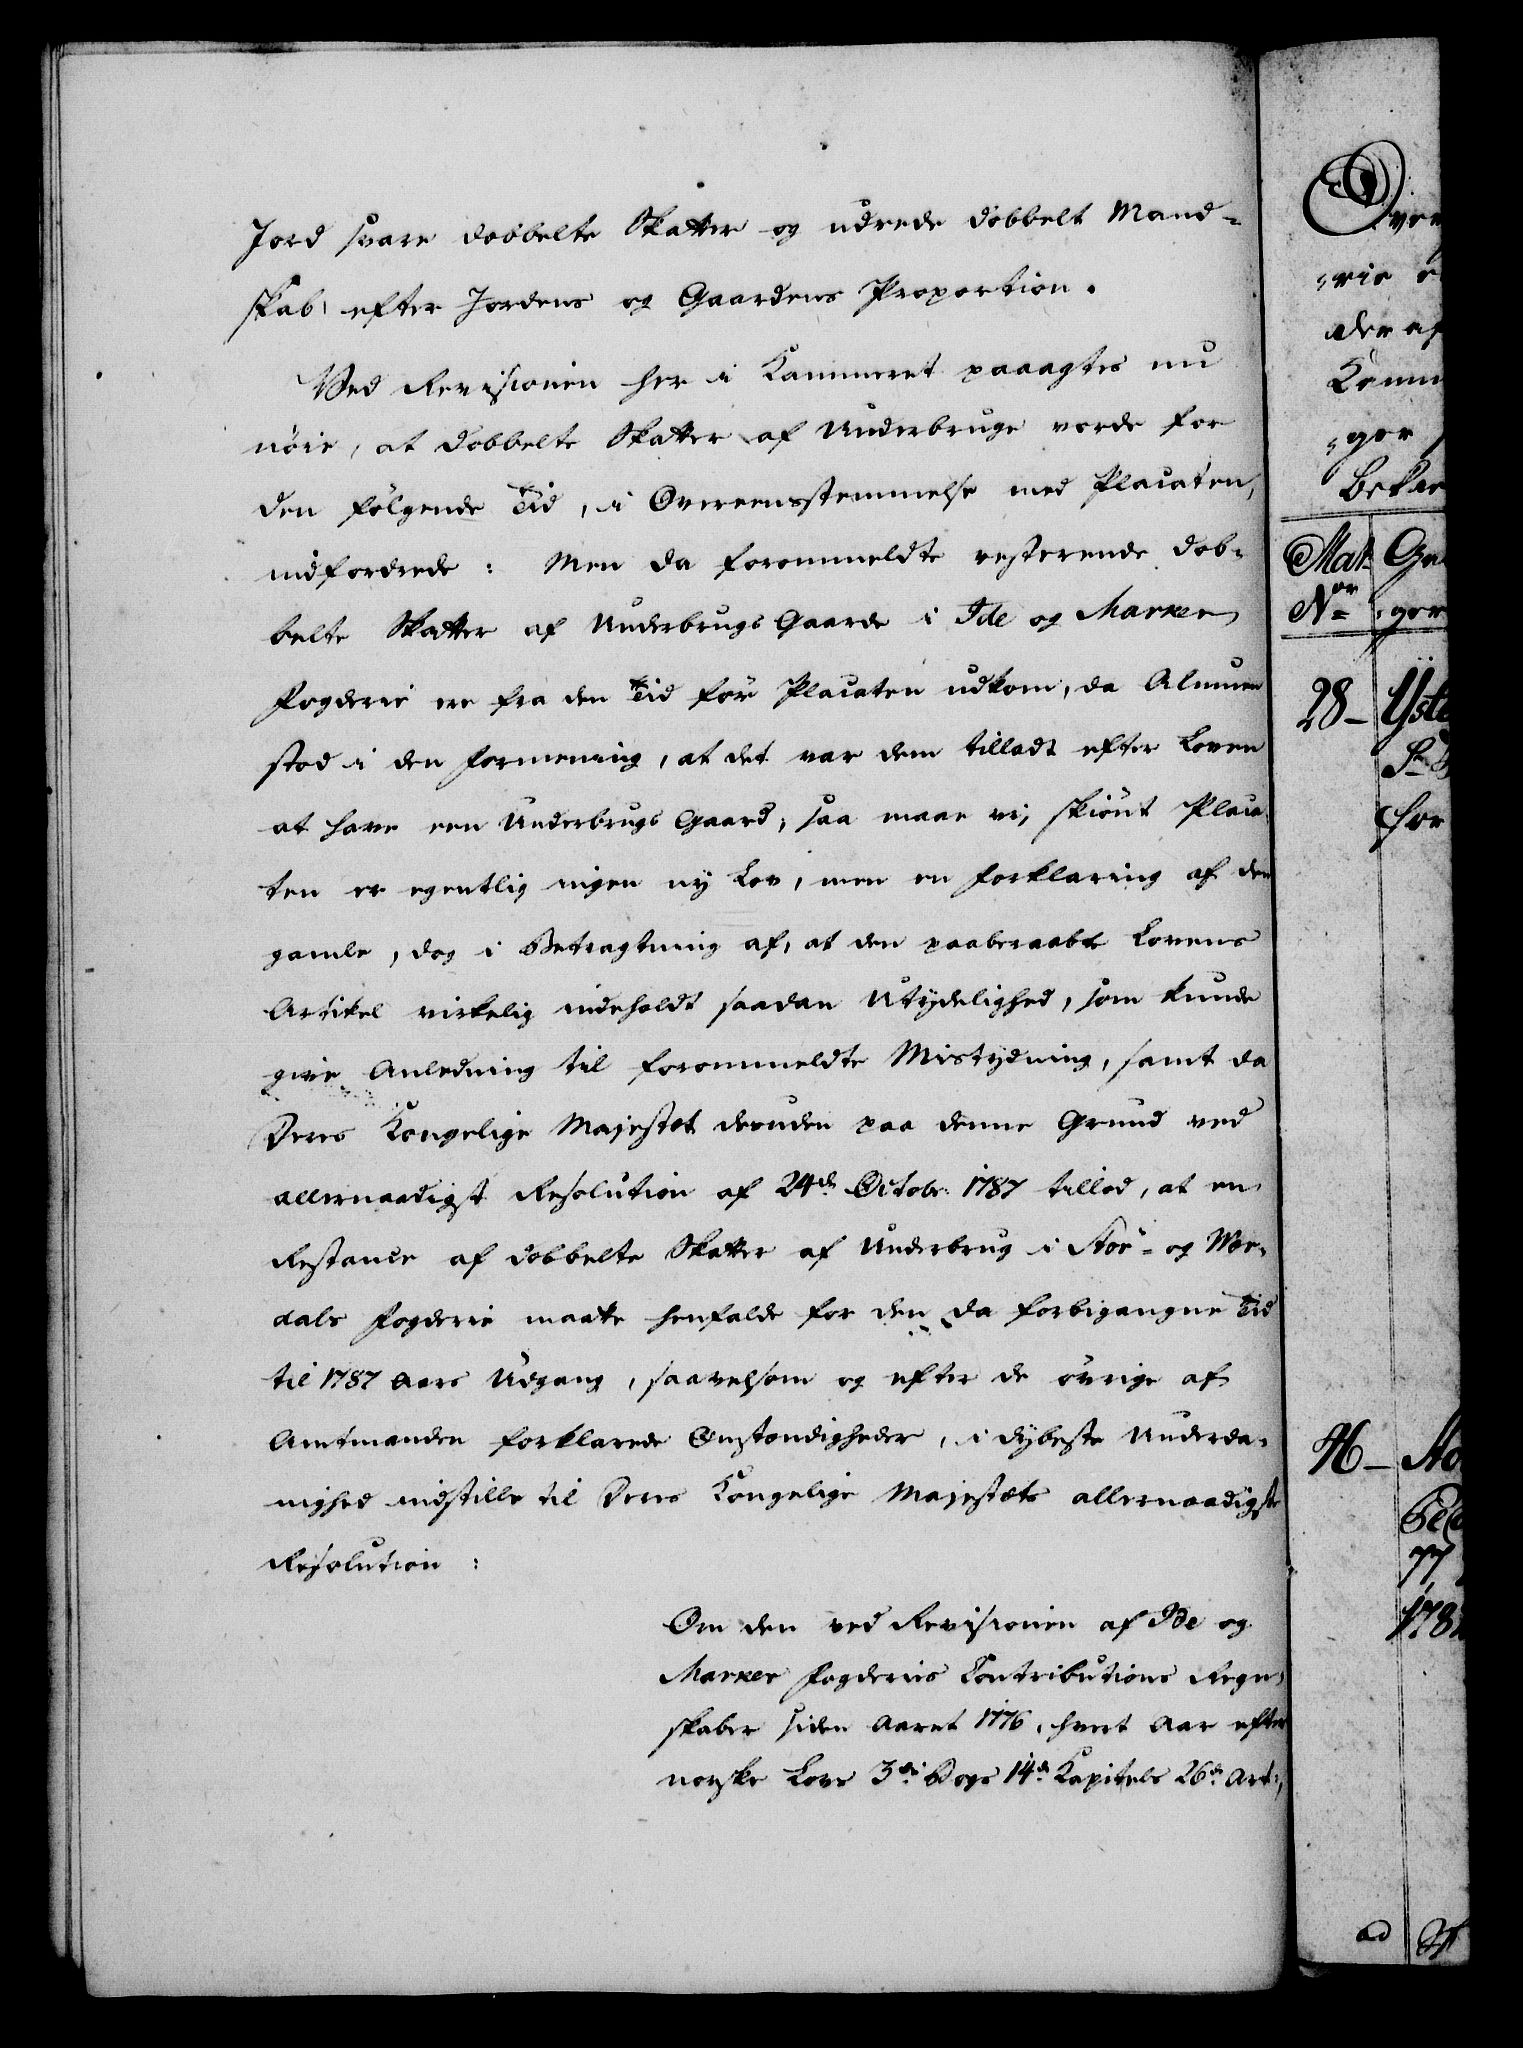 Jord svare dobbelte Skatter og udrede dobbelt Mand-
skab efter Jordens og Gaardens Proportion.
Ved Revisionen her i Kammeret paaagtes nu
nöie, at dobbelte Skatter af Underbruge vorde for
den fölgende Tid, i Overeensstemmelse med Placaten,
indfordrede: Men da forommeldte resterende dob-
belte Skatter af Underbrugs Gaarde i Ide og Marker
Fogderie ere fra den Tid för Placaten udkom, da Almuen
stod i den Formening, at det var dem tilladt efter Loven
at have een Underbrugs Gaard; saa maae vi, skiönt Placa-
ten er egentlig ingen ny Lov, men en Forklaring af den
gamle, dog i Betragtning af, at den paaberaabte Lovens
Artikel virkelig indeholdt saadan Utydelighed, som kunde
give Anledning til forommeldte Mistydning, samt da
Deres Kongelige Majestæt desuden paa denne Grund ved
allernaadigst Resolution af 24de Octobr: 1787 tillod, at en
Restance af dobbelte Skatter af Underbrug i Stör- og Wær-
dals Fogderie maatte henfalde for den da forbigangne Tid
til 1787 Aars Udgang, saavelsom og efter de övrige af
Amtmanden forklarede Omstændigheder, i dybeste Underda-
nighed indstille til Deres Kongelige Majestæts allernaadigste
Resolution:
Om den ved Revisionen af Ide og
Marker Fogderies Contributions Regn-
skaber siden Aaret 1776, hvert Aar efter
norske Lovs 3die Bogs 14de Kapitels 26de Art:,
ad
Mat
Nor
28-
46-
178